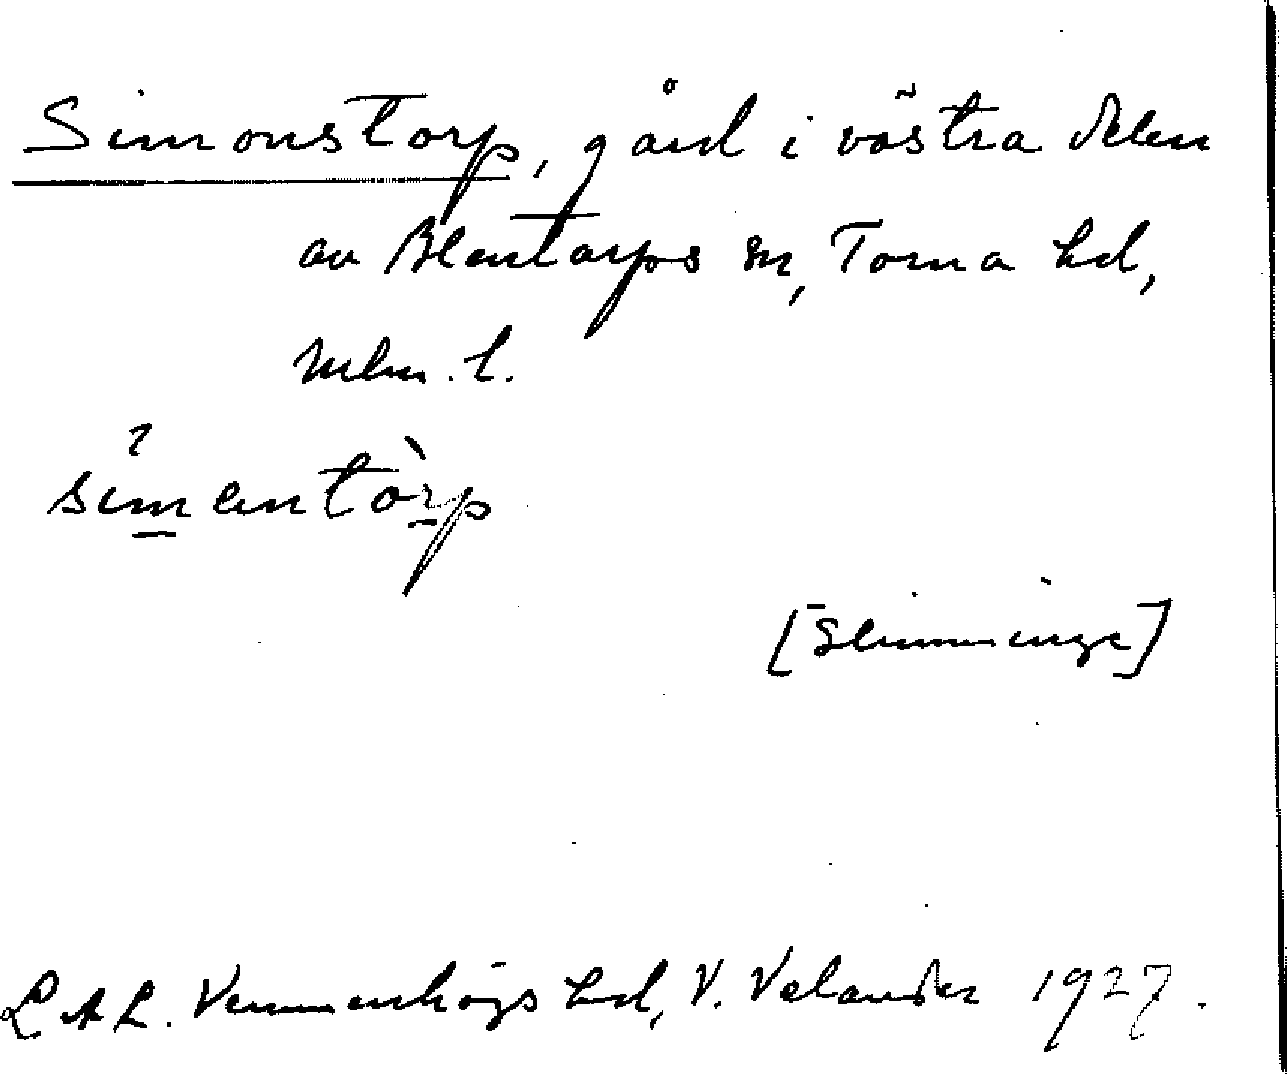 Simonstorp, gård i västra delen
av Blentarps sn, Torna hd,
Mlm. l.
simentòrp
[Slimminge]
L A L. Vemmenhögs hd, V. Velander 1927.